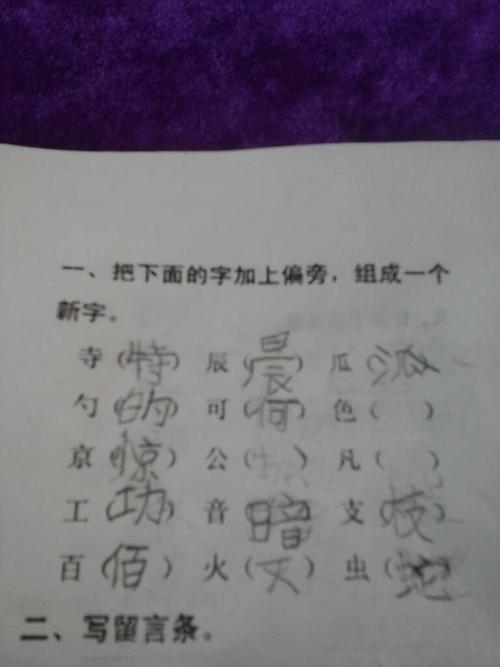 一、把下面的字加上偏旁，组成一个
新字。
寺（特） 辰（晨） 瓜（派）
勺（的） 可（何） 色（ ）
京（惊） 公（ ） 凡（ ）
工（功） 音（暗） 支（枝）
百（佰） 火（灭） 虫（蛇）
二、写留言条。